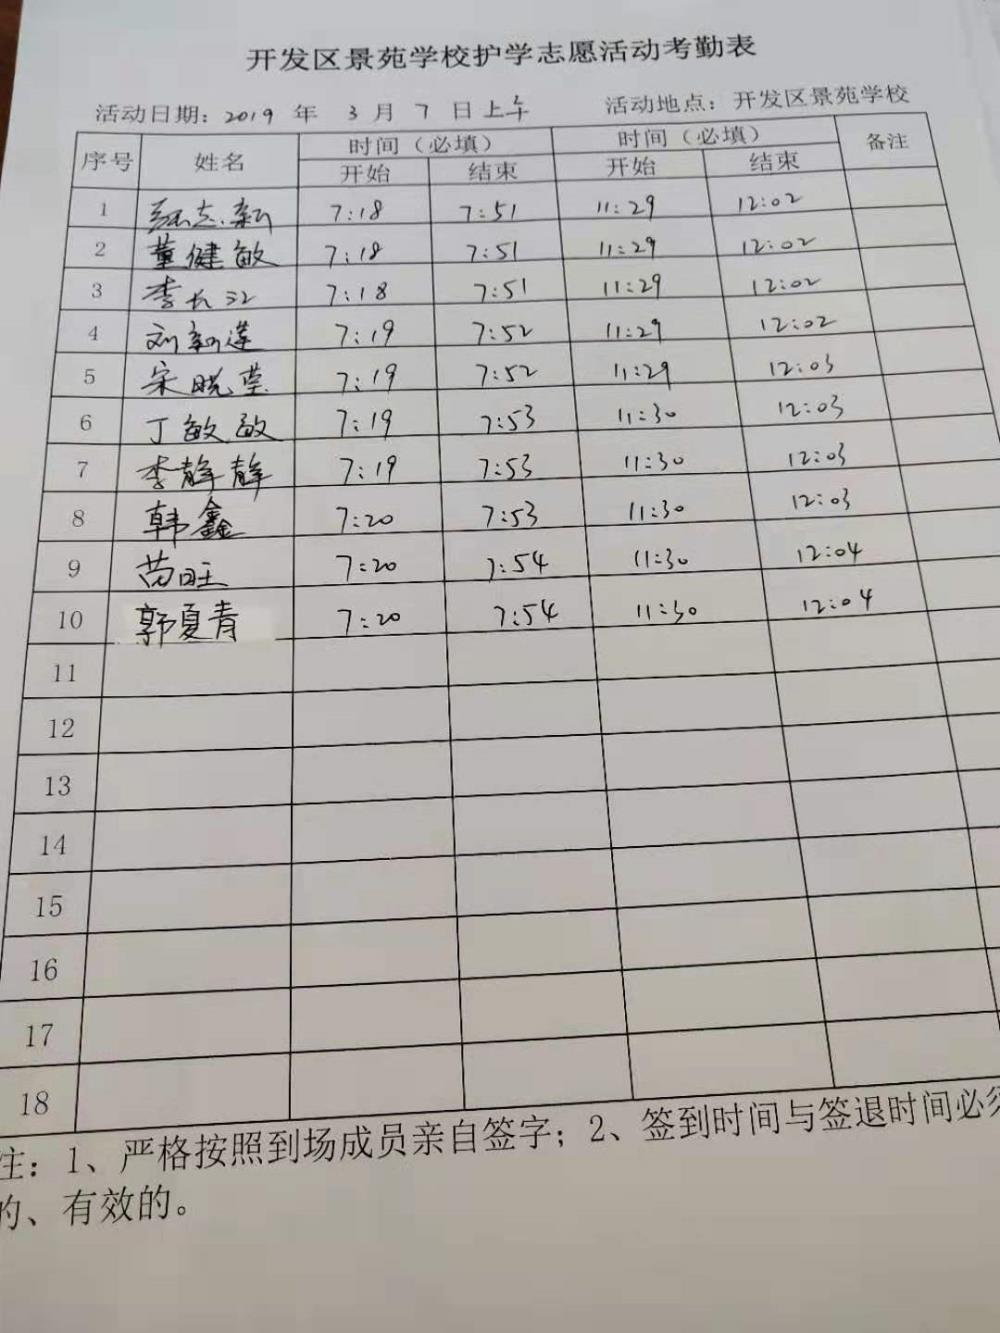 开发区景苑学校护学志愿活动考勤表
活动日期：2019 年 3 月 7 日上午 活动地点：开发区景苑学校
序号 姓名 时间（必填） 时间（必填） 备注
开始 结束 开始 结束
1 志新 7:18 7:51 11:29 12:02
2 董健敏 7:18 7:51 11:29 12:02
3 李长江 7:18 7:51 11:29 12:02
4 刘莲 7:19 7:52 11:29 12:02
5 宋晓莹 7:19 7:52 11:29 12:03
6 丁敏敏 7:19 7:53 11:30 12:03
7 李静静 7:19 7:53 11:30 12:03
8 韩鑫 7:20 7:53 11:30 12:03
9 苗旺 7:20 7:54 11:30 12:04
10 郭夏青 7:20 7:54 11:30 12:04
11
12
13
14
15
16
17
18
注：1、严格按照到场成员亲自签字；2、签到时间与签退时间必须
的、有效的。